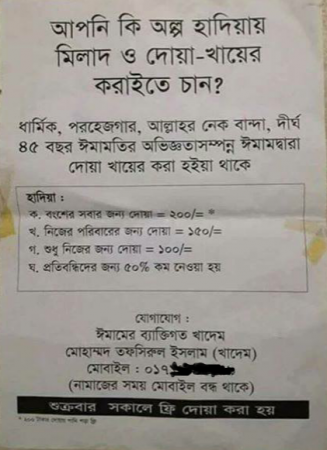 আপনি কি অল্প হাদিয়ায়
মিলাদ ও দোয়া-খায়ের
করাইতে চান?
ধার্মিক, পরহেজগার, আল্লাহর নেক বান্দা, দীর্ঘ
৪৫ বছর ঈমামতির অভিজ্ঞতাসম্পন্ন ঈমামদ্বারা
দোয়া খায়ের করা হইয়া থাকে
হাদিয়া :
ক. বংশের সবার জন্য দোয়া = ২০০/= *
খ. নিজের পরিবারের জন্য দোয়া = ১৫০/=
গ. শুধু নিজের জন্য দোয়া = ১০০/=
ঘ. প্রতিবন্ধিদের জন্য ৫০% কম নেওয়া হয়
যোগাযোগ :
ঈমামের ব্যাক্তিগত খাদেম
মোহাম্মদ তফসিরুল ইসলাম (খাদেম)
মোবাইল : ০১৭
(নামাজের সময় মোবাইল বন্ধ থাকে)
শুক্রবার সকালে ফ্রি দোয়া করা হয়
* ২০০ টাকার দোয়ার পানি পড়া ফ্রি